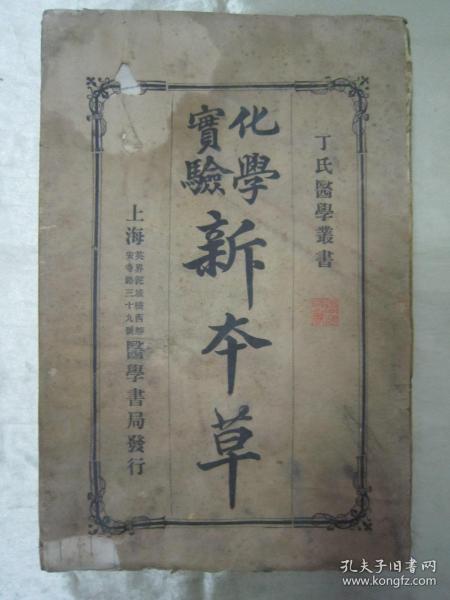 丁氏醫學叢書
化學實驗新本草
上海英界泥城橋西靜安寺路三十九號醫學書局發行
孔夫子旧书网
www.kongfz.com